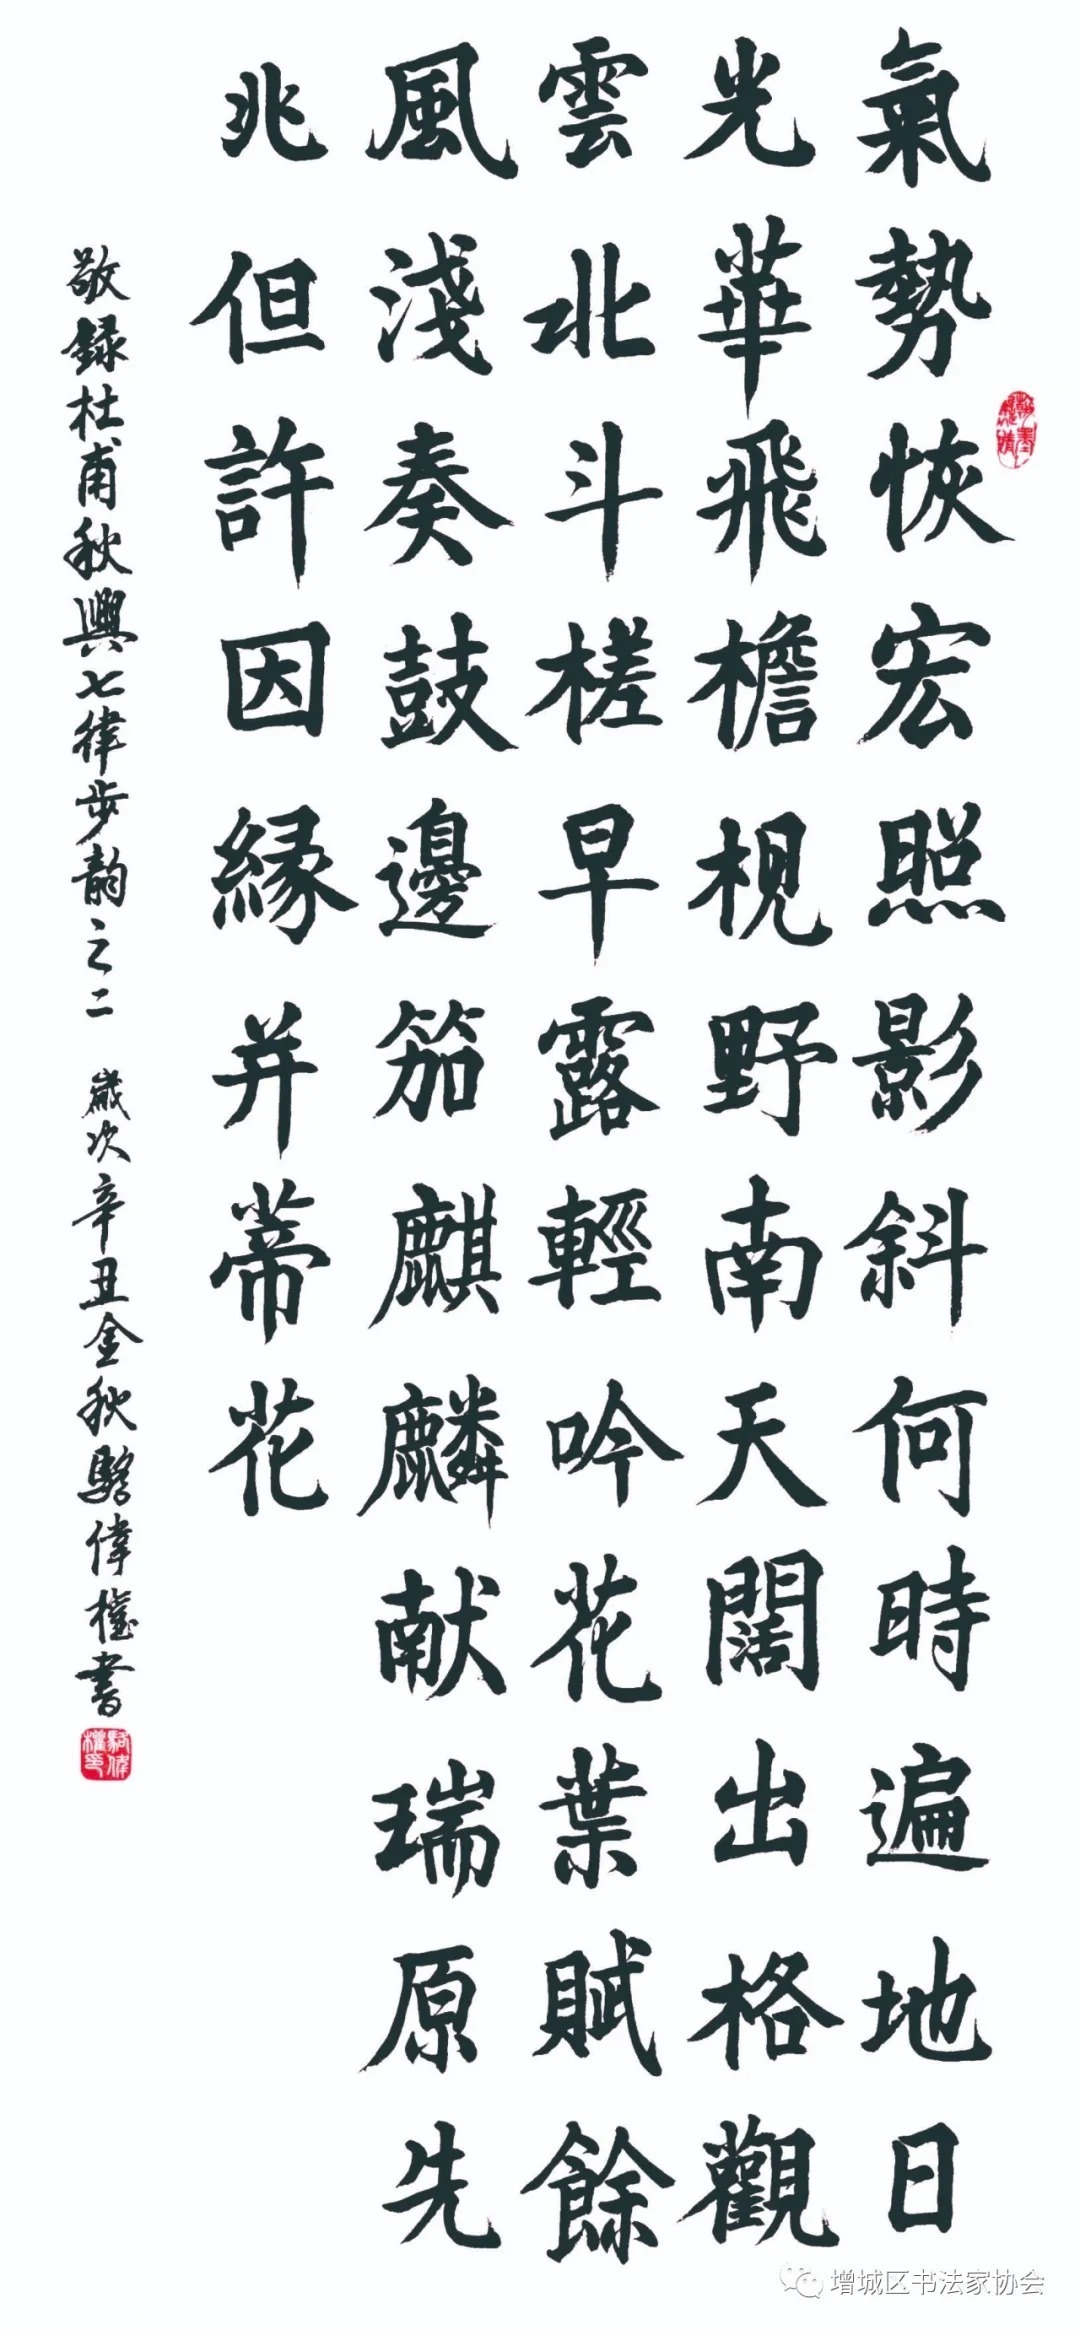 氣勢恢宏照影斜何時遍地日
光華飛檐視野南天闊出格觀
雲北斗槎早露輕吟花葉賦餘
風淺奏鼓邊笳麒麟献瑞原先
兆但許因緣并蒂花
敬録杜甫秋興七律步韵之二 歲次辛丑金秋駱偉權書
駱偉權印
增城区书法家协会